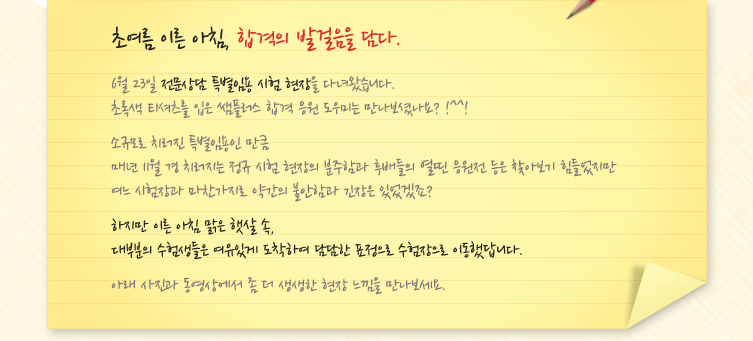 초여름 이른 아침, 합격의 발걸음을 담다.
6월 23일 전문상담 특별임용 시험 현장을 다녀왔습니다.
초록색 티셔츠를 입은 쌤플러스 합격 응원 도우미는 만나보셨나요? !^^!
소규모로 치러진 특별임용인 만큼
매년 11월 경 치러지는 정규 시험 현장의 분주함과 후배들의 열띤 응원전 등은 찾아보기 힘들었지만
여느 시험장과 마찬가지로 약간의 불안함과 긴장은 있었겠죠?
하지만 이른 아침 맑은 햇살 속,
대부분의 수험생들은 여유있게 도착하여 담담한 표정으로 수험장으로 이동했답니다.
아래 사진과 동영상에서 좀 더 생생한 현장 느낌을 만나보세요.